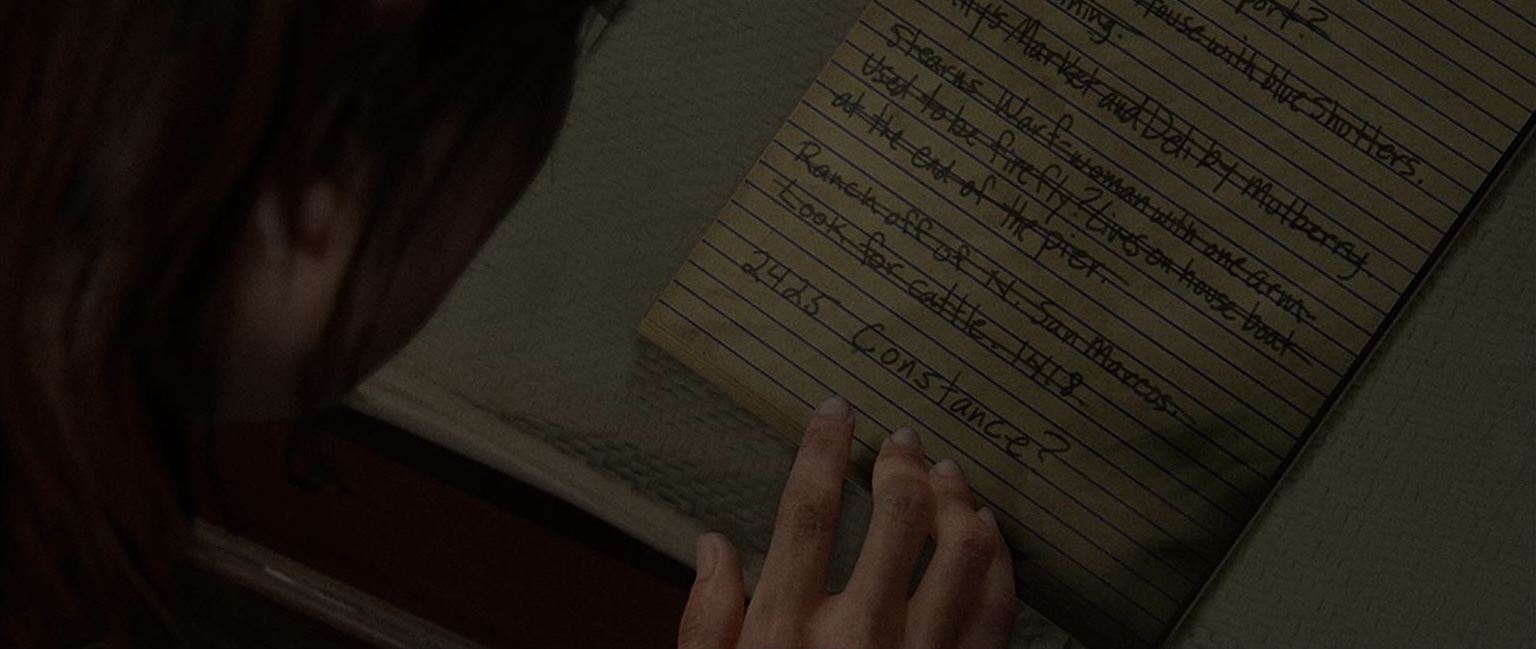 House with blue shutters.
Market and Deli by Mulberry.
Stearns Warf-woman with one arm.
Used to be firefly? Lives on house boat
at the end of the pier.
Ranch off of N. San Marcos.
Look for cattle.
2425 Constance?